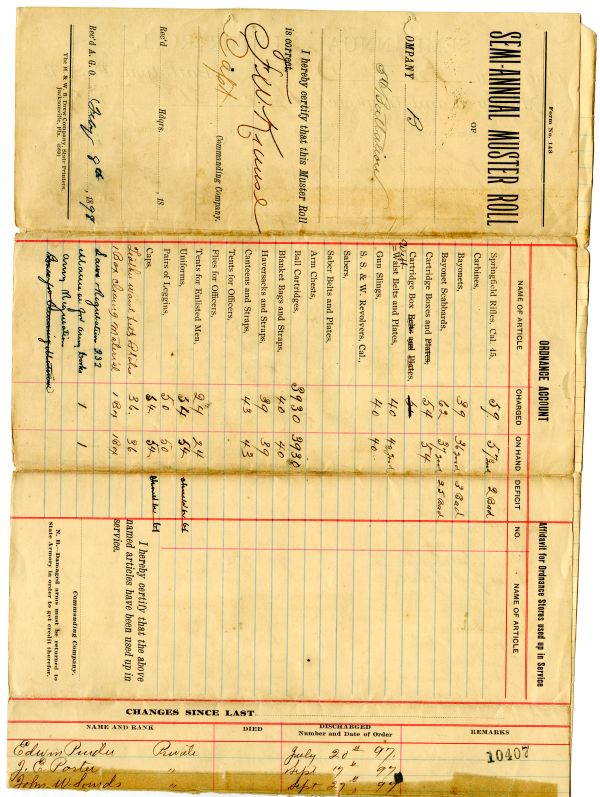 Form No. 148
SEMI-ANNUAL MUSTER ROLL
OF
COMPANY B
3d Battalion
I hereby certify that this Muster Roll
is correct,
Capt
Commanding Company.
Rec'd Hdqrs. 18
Rec'd A. G. O. July 8th, 1898
The H. & W. B. Drew Company, State Printers,
Jacksonville, Fla.
ORDNANCE ACCOUNT
NAME OF ARTICLE CHARGED ON HAND DEFICIT
Springfield Rifles, Cal. 45, 59 57 2 Bad
Carbines,
Bayonets, 39 36 3 Bad
Bayonet Scabbards, 62 37 25 Bad
Cartridge Boxes and Plates, 54 54
Cartridge Box Belts and Plates,
Waist Belts and Plates, 40
Gun Slings, 40 40
S. S. & W. Revolvers, Cal.,
Sabers,
Saber Belts and Plates,
Arm Chests,
Ball Cartridges, 3930 3930
Blanket Bags and Straps, 40 40
Haversacks and Straps, 39 39
Canteens and Straps, 43 43
Tents for Officers,
Flies for Officers,
Tents for Enlisted Men, 24 24
Uniforms, 54 54 should be 61
Pairs of Leggins, 50 50
Caps, 54 54 should be 61
Waist Belt Plates 36 36
1 Box Cleaning Material 1 Box 1 Box
Regulation 232
1 1
Army Regulation
Affidavit for Ordnance Stores used up in Service
NO. NAME OF ARTICLE
I hereby certify that the above
named articles have been used up in
service.
Commanding Company.
N. B.—Damaged arms must be returned to
State Armory in order to get credit therefor.
CHANGES SINCE LAST
NAME AND RANK DIED DISCHARGED REMARKS
Number and Date of Order
Edwin Pinder Private July 20th 97. 10407
J. E. Porter " Sept 17th, 97
John W. Sands " Sept 27th, 97